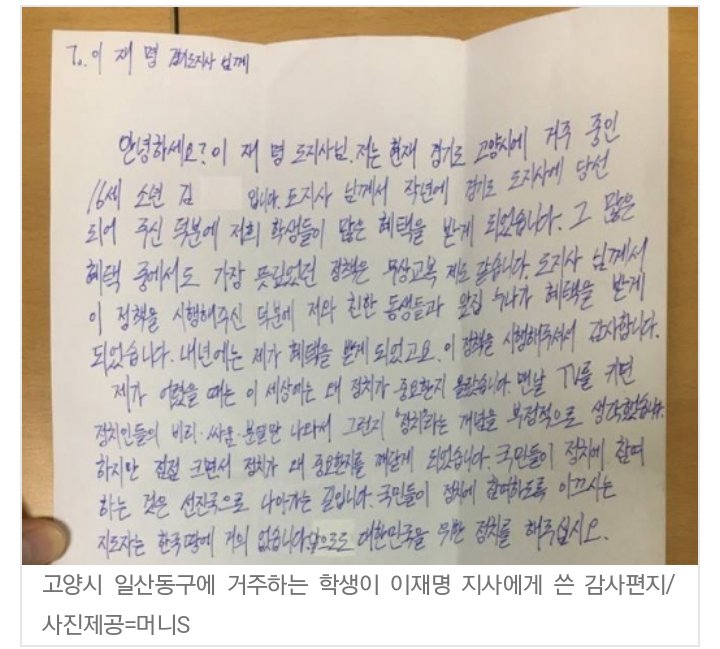 To. 이 재 명 경기도지사 님께
안녕하세요? 이 재 명 도지사님. 저는 현재 경기도 고양시에 거주 중인
16세 소년 김 입니다. 도지사 님께서 작년에 경기도 도지사에 당선
되어 주신 덕분에 저희 학생들이 많은 혜택을 받게 되었습니다. 그 많은
혜택 중에서도 가장 뜻깊었던 정책은 무상교복 제도 같습니다. 도지사 님께서
이 정책을 시행해주신 덕분에 저와 친한 동생들과 옆집 누나가 혜택을 받게
되었습니다. 내년에는 제가 혜택을 받게 되었고요. 이 정책을 시행해주셔서 감사합니다.
제가 어렸을 때는 이 세상에는 왜 정치가 중요한지 몰랐습니다. 맨날 TV를 키면
정치인들의 비리·싸움·분열만 나와서 그런지 '정치'라는 개념을 부정적으로 생각했습니다.
하지만 점점 크면서 정치가 왜 중요한지를 깨닫게 되었습니다. 국민들이 정치에 참여
하는 것은 선진국으로 나아가는 길입니다. 국민들이 정치에 참여하도록 이끄시는
지도자는 한국땅에 거의 없습니다. 앞으로도 대한민국을 위한 정치를 해주십시오.
고양시 일산동구에 거주하는 학생이 이재명 지사에게 쓴 감사편지/
사진제공=머니S